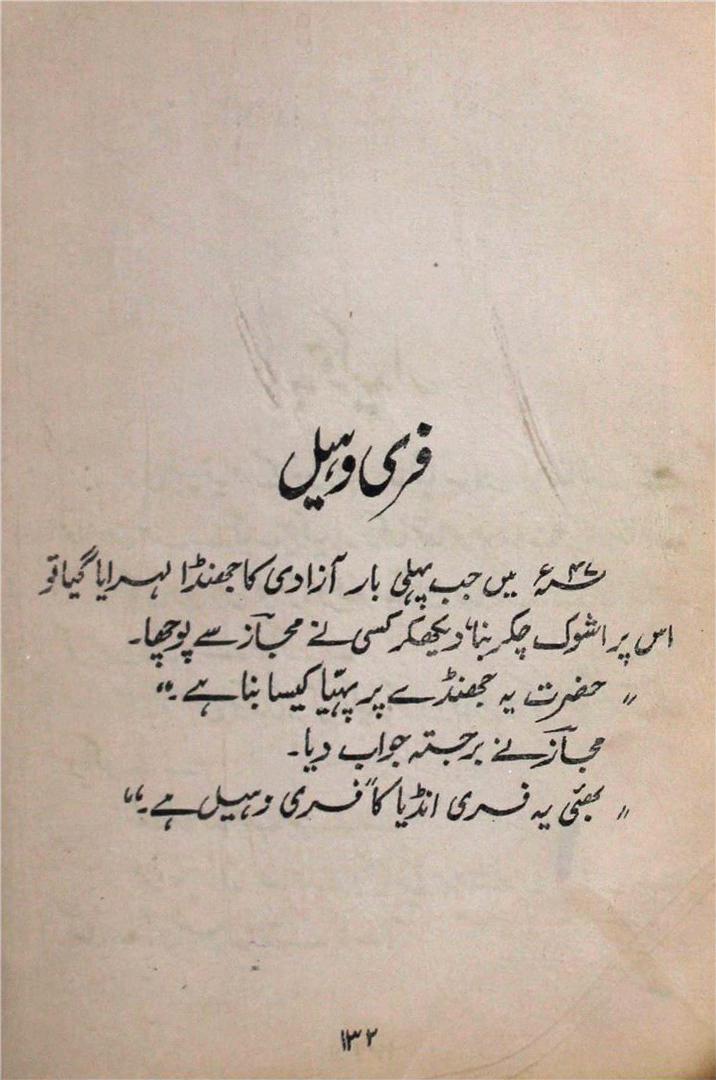 فری وہیل
۴۷ء میں جب پہلی بار آزادی کا جھنڈا لہرایا گیا تو
اس پر اشوک چکر بنا دیکھکر کسی نے مجاز سے پوچھا۔
"حضرت یہ جھنڈے پر پہیّا کیسا بنا ہے۔"
مجاز نے برجستہ جواب دیا۔
"بھئی یہ فری انڈیا کا "فری وہیل ہے۔"
۱۳۲